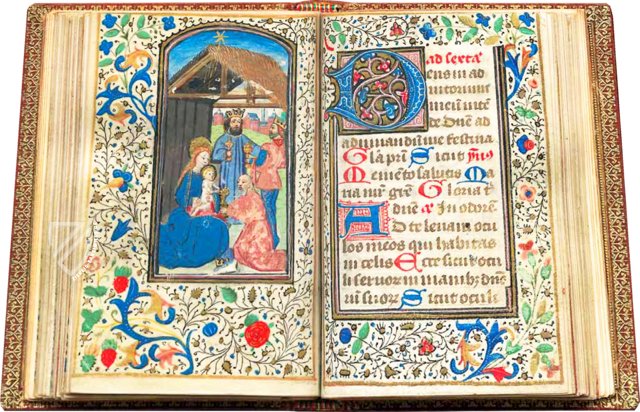 ad sextā
Deus in ad
iutorium
meū inte
de Dn̄e ad
adiuuandū me festina
Glā pr̄i Sicut ym̄s
Memēto salutis Ma
ria mr̄ grē Gloria t
Ad dn̄e añ In odorē
Ad te leuaui ocu
los meos qui habitas
in celis Ecce sicut ocu
li seruor̄ in manib₉ dn̄m
in suor̄ Sicut oculi